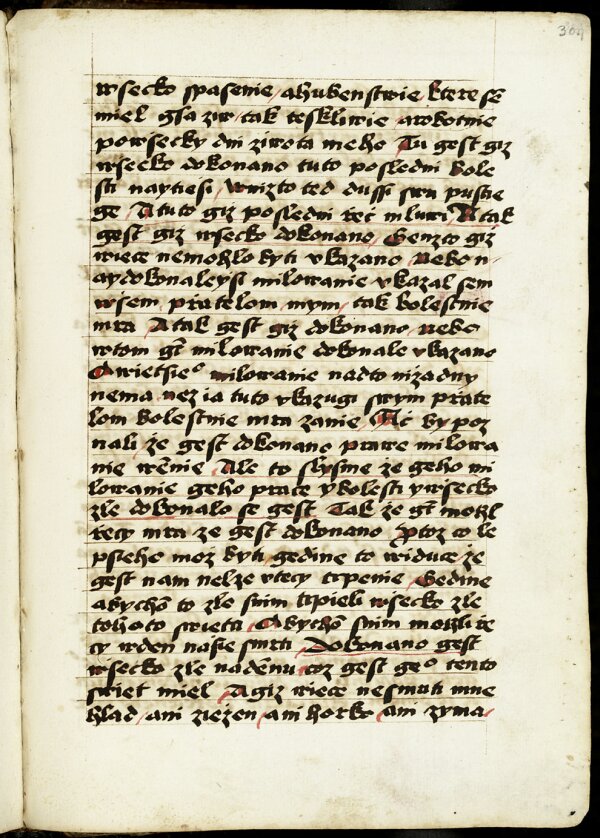 304
wsecko spasenie / ahubenstwie / ktere sē
miel gsa ziw / tak teskliwie arobotnie
powsecky dni ziwota meho Tu gest giz
wsecko dokonano tuto posledni bole
sti naytiesi / wnizto ted dussi swu pustie
ge / A tuto giz posledni rec mluwi / A tak
gest giz wsecko dokonano / Genzto giz
wiece nemohlo byti vkazano Nebo n-
aydokonaleysi milowanie vkazal sem
wsem pratelom mym / tak bolestnie
mra / A tak gest giz dokonano / nebo
wtom gt milowanie dokonale vkazano
Awietsieo milowanie nadto nizadny
nema nez ia tuto vkazugi swym prate
lom bolestnie mra zanie / Ac by poz
nali / ze gest dokonano prawe milowa
nie wēnie / Ale to slysme ze geho mi
lowanie geho prace ybolesti ywsecko
zle dokonalo se gest Tak ze gt mohl
recy mra ze gest dokonano / Protoz co le
psieho moz byti gedine to widuce ze
gest nam nelze vtecy trpenie / Gedine
abychō to zle snim trpieli wsecko zle
tohoto swieta / Abychō snim mohli re
cy wden nasie smrti / Dokonano gest
wsecko zle nademnu coz gest geo tento
swiet miel / A giz wiece nesmuti mne
hlad / ani ziezen / ani horko / ani zyma /